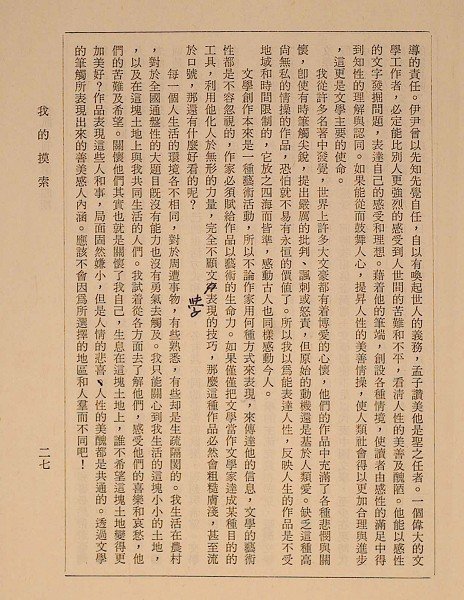 導的責任。伊尹曾以先知先覺自任,自以有喚起世人的義務,孟子讚美他是聖之任者。一個偉大的文
學工作者,必定能比別人更強烈的感受到人世間的苦難和不平,看清人性的美善及醜陋。他能以感性
的文字發掘問題,表達自己的感受和理想。藉着他的筆端,創設各種情境,使讀者由感性的滿足中得
到知性的理解與認同。如果能從而鼓舞人心,提昇人性的美善情操,使人類社會得以更加合理與進步
,這更是文學主要的使命。
我從許多名著中發覺,世界上許多大文豪都有着博愛的心懷,他們的作品中充滿了各種悲憫與關
懷,卽使有時筆觸尖銳,提出嚴厲的批判、諷刺或怒責,但原始的動機還是基於人類愛。缺乏這種高
尚無私的情操的作品,恐怕就不易有永恒的價值了。所以我以爲能表達人性,反映人生的作品是不受
地域和時間限制的,它放之四海而皆準,感動古人也同樣感動今人。
文學創作本來是一種藝術活動,所以不論作家用何種方式來表現,來傳達他的信息,文學的藝術
性都是不容忽視的,作家必須賦給作品以藝術的生命力。如果僅僅把文學當作文學家達成某種目的的
工具,利用他化人於無形的力量,完全不顧文學表現的技巧,那麼這種作品必然會粗糙膚淺,甚至流
於口號,那還有什麼好看的呢?
每一個人生活的環境各不相同,對於周遭事物,有些熟悉,有些却是生疏隔閡的。我生活在農村
,對於全國通整性的大題目旣沒有能力也沒有勇氣去觸及。我只能關心到我生活的這塊小小的土地,
以及在這塊土地上與我共同生活的人們。我試着從各方面去了解他們,感受他們的喜樂和哀愁,他
們的苦難及希望。關懷他們其實也就是關懷了我自己,生息在這塊土地上,誰不希望這塊土地變得更
加美好?作品表現這些人和事,局面固然嫌小,但是人情的悲喜、人性的美醜都是共通的。透過文學
的筆觸所表現出來的善美感人內涵。應該不會因爲所選擇的地區和人羣而不同吧!
我的摸索
二七